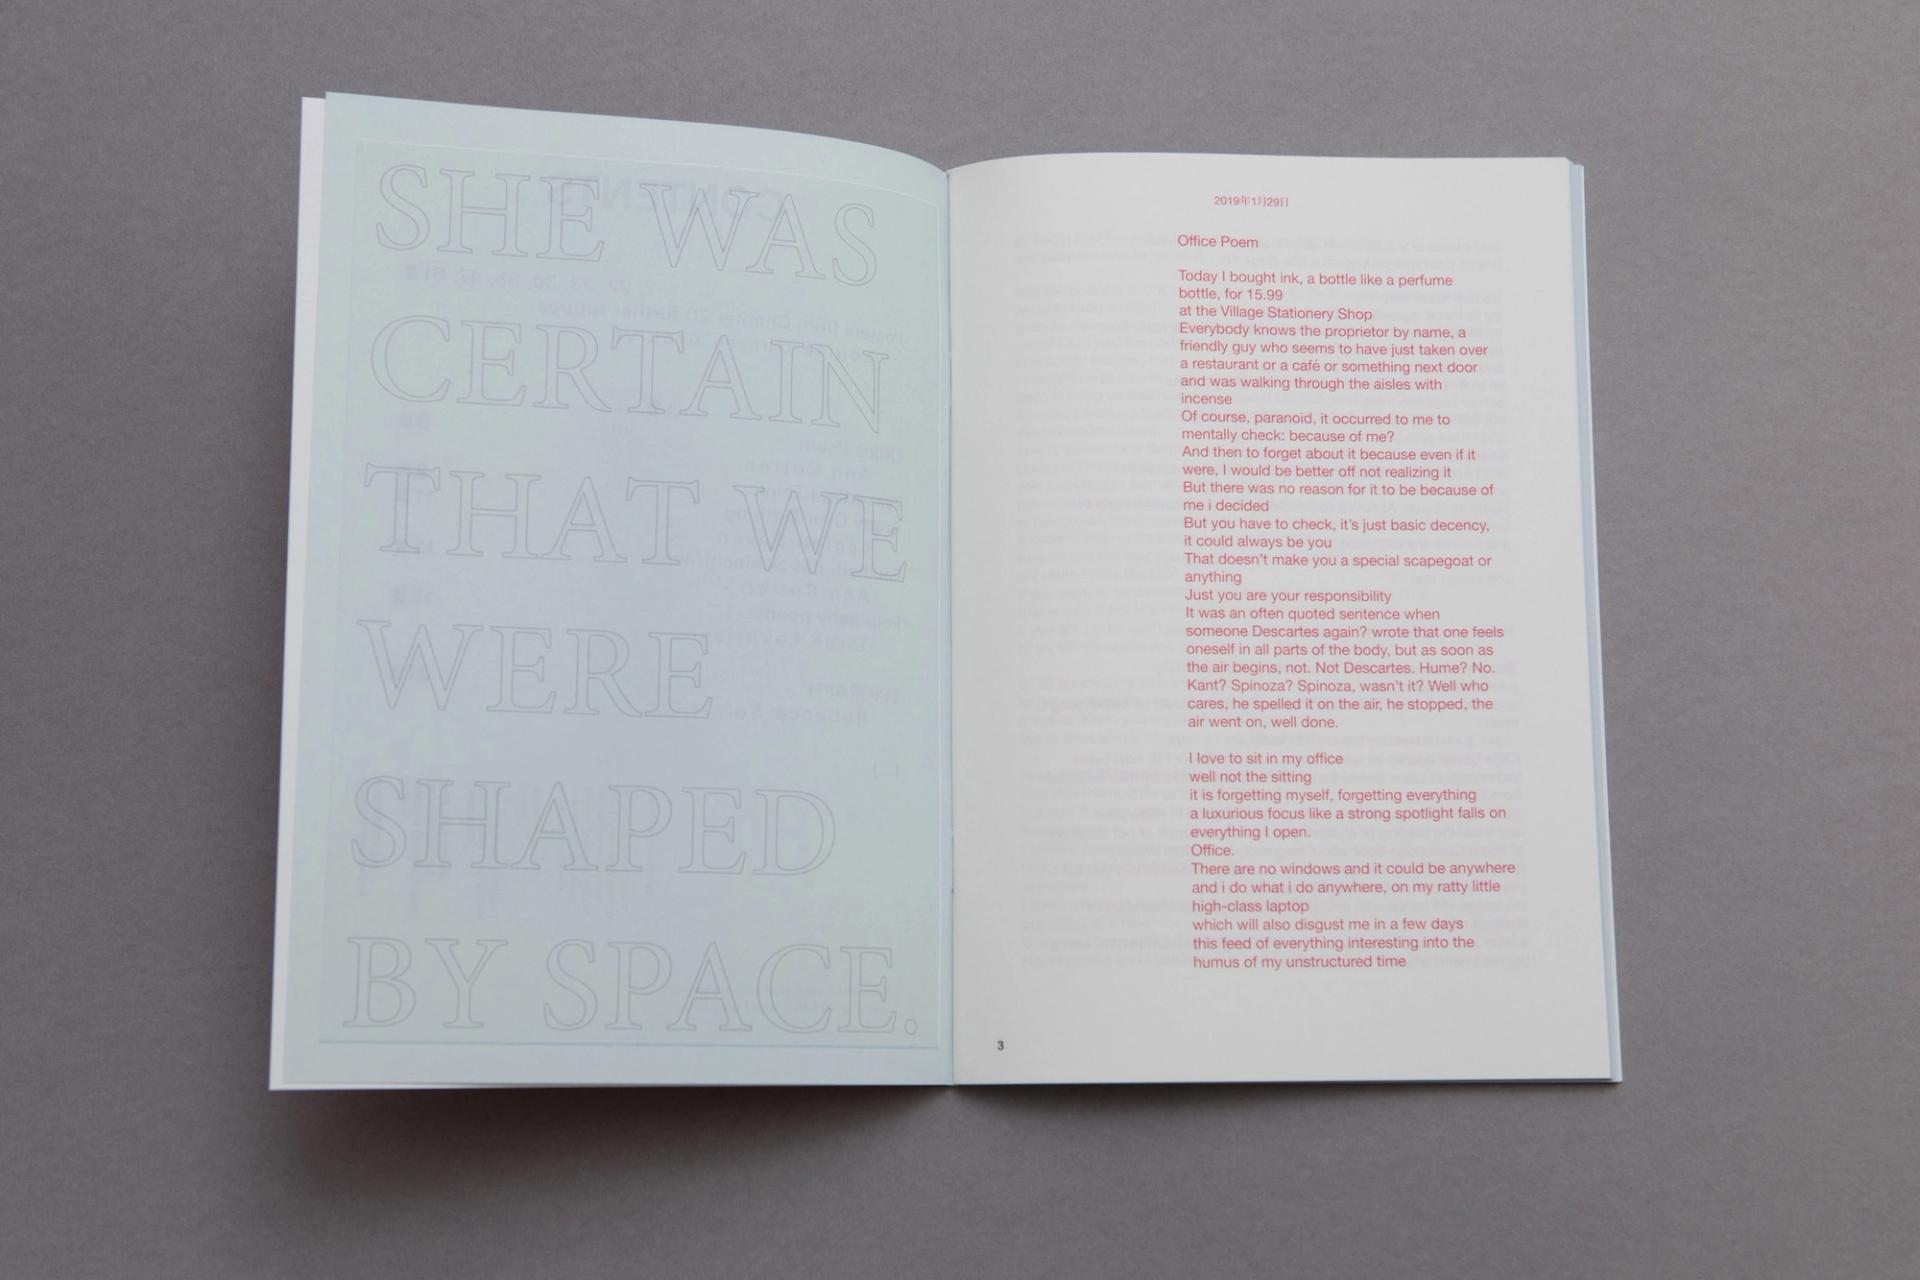 SHE WAS
CERTAIN
THAT WE
WERE
SHAPED
BY SPACE.
2019年1月29日
Office Poem
Today I bought ink, a bottle like a perfume
bottle, for 15.99
at the Village Stationery Shop
Everybody knows the proprietor by name, a
friendly guy who seems to have just taken over
a restaurant or a café or something next door
and was walking through the aisles with
incense
Of course, paranoid, it occurred to me to
mentally check: because of me?
And then to forget about it because even if it
were, I would be better off not realizing it
But there was no reason for it to be because of
me i decided
But you have to check, it's just basic decency,
it could always be you
That doesn't make you a special scapegoat or
anything
Just you are your responsibility
It was an often quoted sentence when
someone Descartes again? wrote that one feels
oneself in all parts of the body, but as soon as
the air begins, not. Not Descartes. Hume? No.
Kant? Spinoza? Spinoza, wasn't it? Well who
cares, he spelled it on the air, he stopped, the
air went on, well done.
I love to sit in my office
well not the sitting
it is forgetting myself, forgetting everything
a luxurious focus like a strong spotlight falls on
everything I open.
Office.
There are no windows and it could be anywhere
and i do what i do anywhere, on my ratty little
high-class laptop
which will also disgust me in a few days
this feed of everything interesting into the
humus of my unstructured time
3